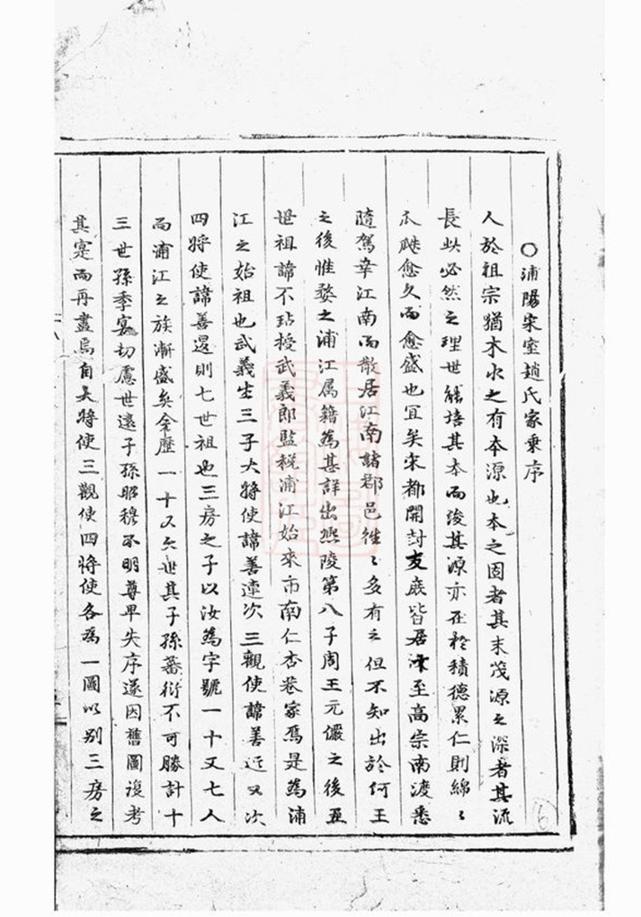 ○浦陽宋室趙氏家乗序
人於祖宗猶木水之有本源也本之固者其末茂源之深者其流
長此必然之理世能培其本而浚其源亦在於積德累仁則綿〻
瓜瓞愈久而愈盛也宜矣宋都開封支庶皆居汴至高宗南渡悉
隨駕幸江南而散居江南諸郡邑徃〻多有之但不知出於何王
之後惟婺之浦江属籍為甚詳出熙陵第八子周王元儼之後五
世祖諱不玷授武義郎監税浦江始來市南仁杏巷家焉是為浦
江之始祖也武義生三子大將使諱善逺次三觀使諱善近又次
四將使諱善還則七世祖也三房之子以汝為字號一十又七人
而浦江之族漸盛矣今歷一十又六世其子孫蕃衍不可勝計十
三世孫季 切慮世逺子孫昭穆不明尊卑失序遂因舊圖複考
其寔而再畫焉自大將使三觀使四將使各為一圖以别三房之
6